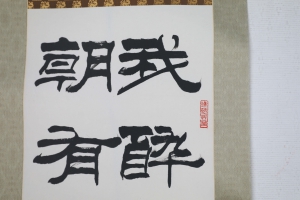 我醉
朝有